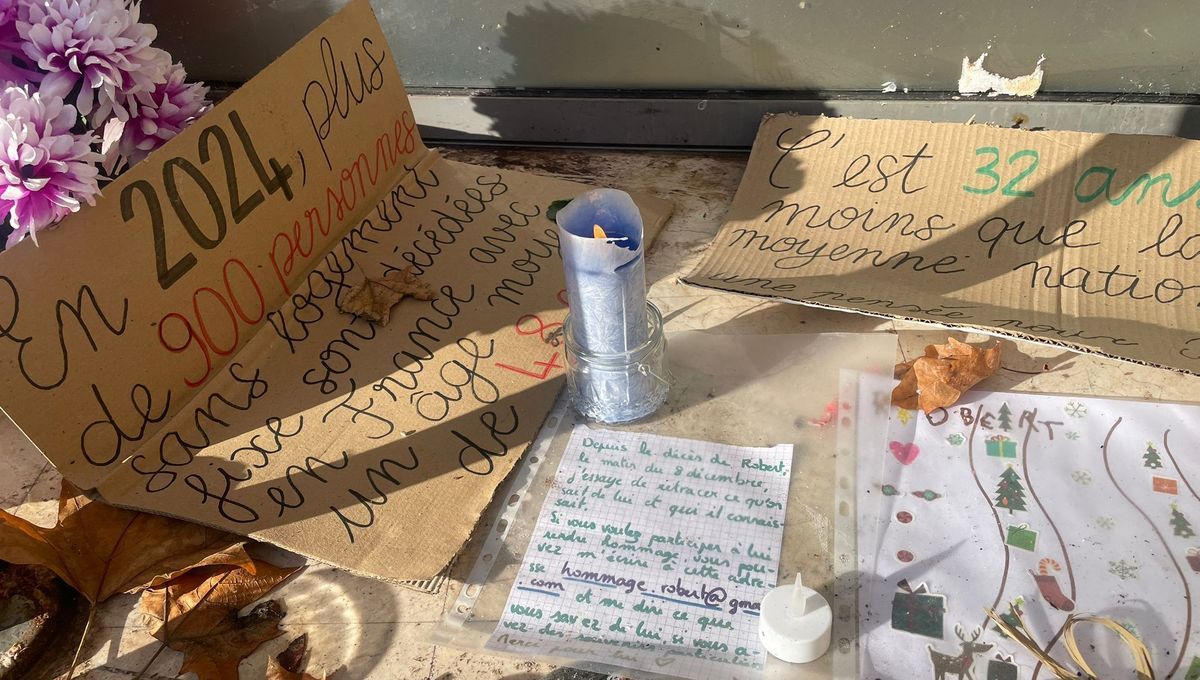 En 2024, plus
de 900 personnes
sans logement
fixe sont décédées
en France avec
un âge moyen
de 48
C'est 32 ans
moins que la
moyenne natio
une pensée pour
Depuis le décès de Robert,
le matin du 8 décembre,
j'essaye de retracer ce qu'on
sait de lui et qui il connais-
sait.
Si vous voulez participer à lui
rendre hommage vous pou-
vez m'écrire à cette adre-
sse hommage.robert@gma
.com et me dire ce que
vous savez de lui, si vous a-
vez des souvenirs particuliers
Merci pour lui ♡